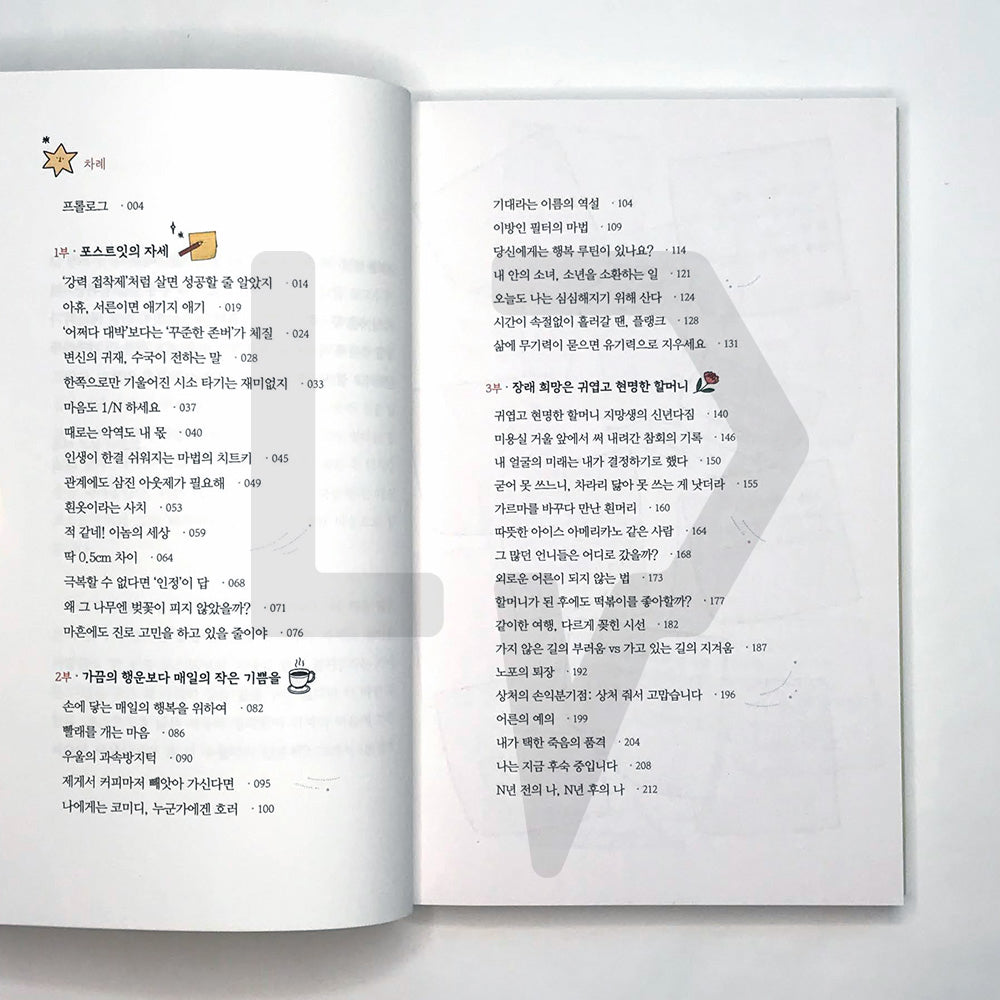 차례
프롤로그 · 004
1부 · 포스트잇의 자세
‘강력 접착제’처럼 살면 성공할 줄 알았지 · 014
아휴, 서른이면 애기지 애기 · 019
‘어쩌다 대박’보다는 ‘꾸준한 존버’가 체질 · 024
변신의 귀재, 수국이 전하는 말 · 028
한쪽으로만 기울어진 시소 타기는 재미없지 · 033
마음도 1/N 하세요 · 037
때로는 악역도 내 몫 · 040
인생이 한결 쉬워지는 마법의 치트키 · 045
관계에도 삼진 아웃제가 필요해 · 049
흰옷이라는 사치 · 053
적 같네! 이놈의 세상 · 059
딱 0.5cm 차이 · 064
극복할 수 없다면 ‘인정’이 답 · 068
왜 그 나무엔 벚꽃이 피지 않았을까? · 071
마흔에도 진로 고민을 하고 있을 줄이야 · 076
2부 · 가끔의 행운보다 매일의 작은 기쁨을
손에 닿는 매일의 행복을 위하여 · 082
빨래를 개는 마음 · 086
우울의 과속방지턱 · 090
제게서 커피마저 빼앗아 가신다면 · 095
나에게는 코미디, 누군가에겐 호러 · 100
기대라는 이름의 역설 · 104
이방인 필터의 마법 · 109
당신에게는 행복 루틴이 있나요? · 114
내 안의 소녀, 소년을 소환하는 일 · 121
오늘도 나는 심심해지기 위해 산다 · 124
시간이 속절없이 흘러갈 땐, 플랭크 · 128
삶에 무기력이 묻으면 유기력으로 지우세요 · 131
3부 · 장래 희망은 귀엽고 현명한 할머니
귀엽고 현명한 할머니 지망생의 신년다짐 · 140
미용실 거울 앞에서 써 내려간 참회의 기록 · 146
내 얼굴의 미래는 내가 결정하기로 했다 · 150
굳어 못 쓰느니, 차라리 닳아 못 쓰는 게 낫더라 · 155
가르마를 바꾸다 만난 흰머리 · 160
따뜻한 아이스 아메리카노 같은 사람 · 164
그 많던 언니들은 어디로 갔을까? · 168
외로운 어른이 되지 않는 법 · 173
할머니가 된 후에도 떡볶이를 좋아할까? · 177
같이한 여행, 다르게 꽂힌 시선 · 182
가지 않은 길의 부러움 vs 가고 있는 길의 지겨움 · 187
노포의 퇴장 · 192
상처의 손익분기점: 상처 줘서 고맙습니다 · 196
어른의 예의 · 199
내가 택한 죽음의 품격 · 204
나는 지금 후숙 중입니다 · 208
N년 전의 나, N년 후의 나 · 212